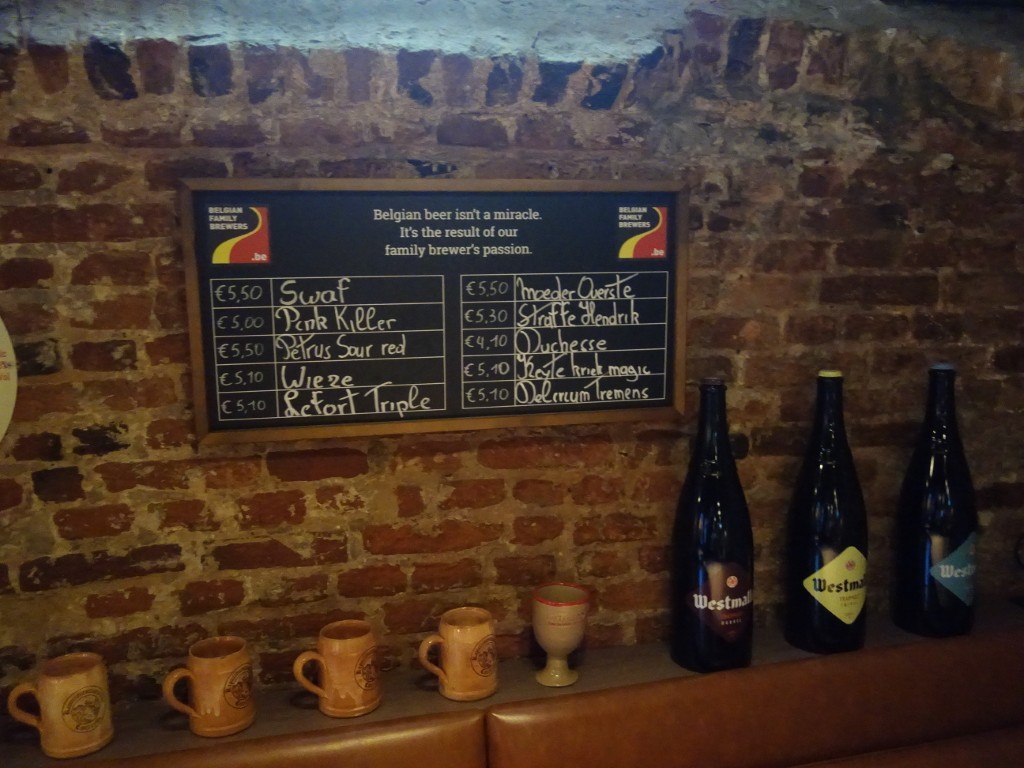 BELGIAN
FAMILY
BREWERS
.be
Belgian beer isn't a miracle.
It's the result of our
family brewer's passion.
BELGIAN
FAMILY
BREWERS
.be
€5,50 Swaf
€5,00 Pink Killer
€5,50 Petrus Sour red
€5,10 Wieze
€5,10 Lefort Triple
€5,50 Moeder Overste
€5,30 Straffe Hendrik
€4,10 Duchesse
€5,10 kriek magic
€5,10 Delirium Tremens
Westmal
DUBBEL
Westmal
TRAPPIST
TRIPEL
Westm